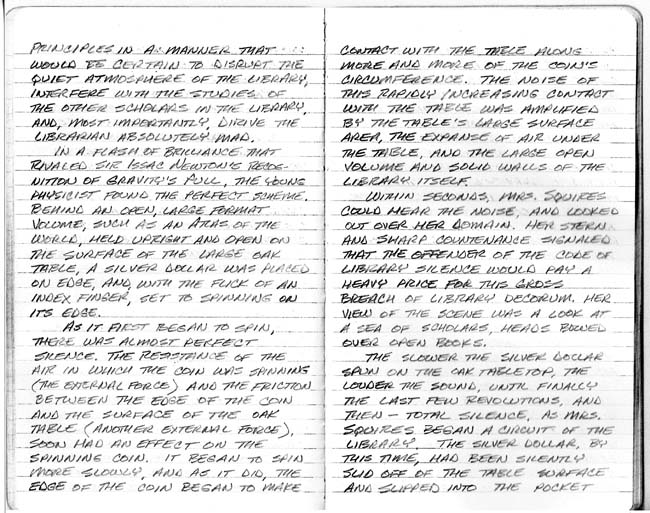 PRINCIPLES IN A MANNER THAT
WOULD BE CERTAIN TO DISRUPT THE
QUIET ATMOSPHERE OF THE LIBRARY,
INTERFERE WITH THE STUDIES OF
THE OTHER SCHOLARS IN THE LIBRARY,
AND, MOST IMPORTANTLY, DRIVE THE
LIBRARIAN ABSOLUTELY MAD.
IN A FLASH OF BRILLIANCE THAT
RIVALED SIR ISSAC NEWTON'S RECOG-
NITION OF GRAVITY'S PULL, THE YOUNG
PHYSICIST FOUND THE PERFECT SCHEME.
BEHIND AN OPEN, LARGE FORMAT
VOLUME, SUCH AS AN ATLAS OF THE
WORLD, HELD UPRIGHT AND OPEN ON
THE SURFACE OF THE LARGE OAK
TABLE, A SILVER DOLLAR WAS PLACED
ON EDGE, AND, WITH THE FLICK OF AN
INDEX FINGER, SET TO SPINNING ON
ITS EDGE.
AS IT FIRST BEGAN TO SPIN,
THERE WAS ALMOST PERFECT
SILENCE. THE RESISTANCE OF THE
AIR IN WHICH THE COIN WAS SPINNING
(THE EXTERNAL FORCE) AND THE FRICTION
BETWEEN THE EDGE OF THE COIN
AND THE SURFACE OF THE OAK
TABLE (ANOTHER EXTERNAL FORCE),
SOON HAD AN EFFECT ON THE
SPINNING COIN. IT BEGAN TO SPIN
MORE SLOWLY, AND AS IT DID, THE
EDGE OF THE COIN BEGAN TO MAKE
CONTACT WITH THE TABLE ALONG
MORE AND MORE OF THE COIN'S
CIRCUMFERENCE. THE NOISE OF
THIS RAPIDLY INCREASING CONTACT
WITH THE TABLE WAS AMPLIFIED
BY THE TABLE'S LARGE SURFACE
AREA, THE EXPANSE OF AIR UNDER
THE TABLE, AND THE LARGE OPEN
VOLUME AND SOLID WALLS OF THE
LIBRARY ITSELF.
WITHIN SECONDS, MRS. SQUIRES
COULD HEAR THE NOISE, AND LOOKED
OUT OVER HER DOMAIN. HER STERN
AND SHARP COUNTENANCE SIGNALED
THAT THE OFFENDER OF THE CODE OF
LIBRARY SILENCE WOULD PAY A
HEAVY PRICE FOR THIS GROSS
BREACH OF LIBRARY DECORUM. HER
VIEW OF THE SCENE WAS A LOOK AT
A SEA OF SCHOLARS, HEADS BOWED
OVER OPEN BOOKS.
THE SLOWER THE SILVER DOLLAR
SPUN ON THE OAK TABLETOP, THE
LOUDER THE SOUND, UNTIL FINALLY
THE LAST FEW REVOLUTIONS, AND
THEN - TOTAL SILENCE, AS MRS.
SQUIRES BEGAN A CIRCUIT OF THE
LIBRARY. THE SILVER DOLLAR, BY
THIS TIME, HAD BEEN SILENTLY
SLID OFF OF THE TABLE SURFACE
AND SLIPPED INTO THE POCKET